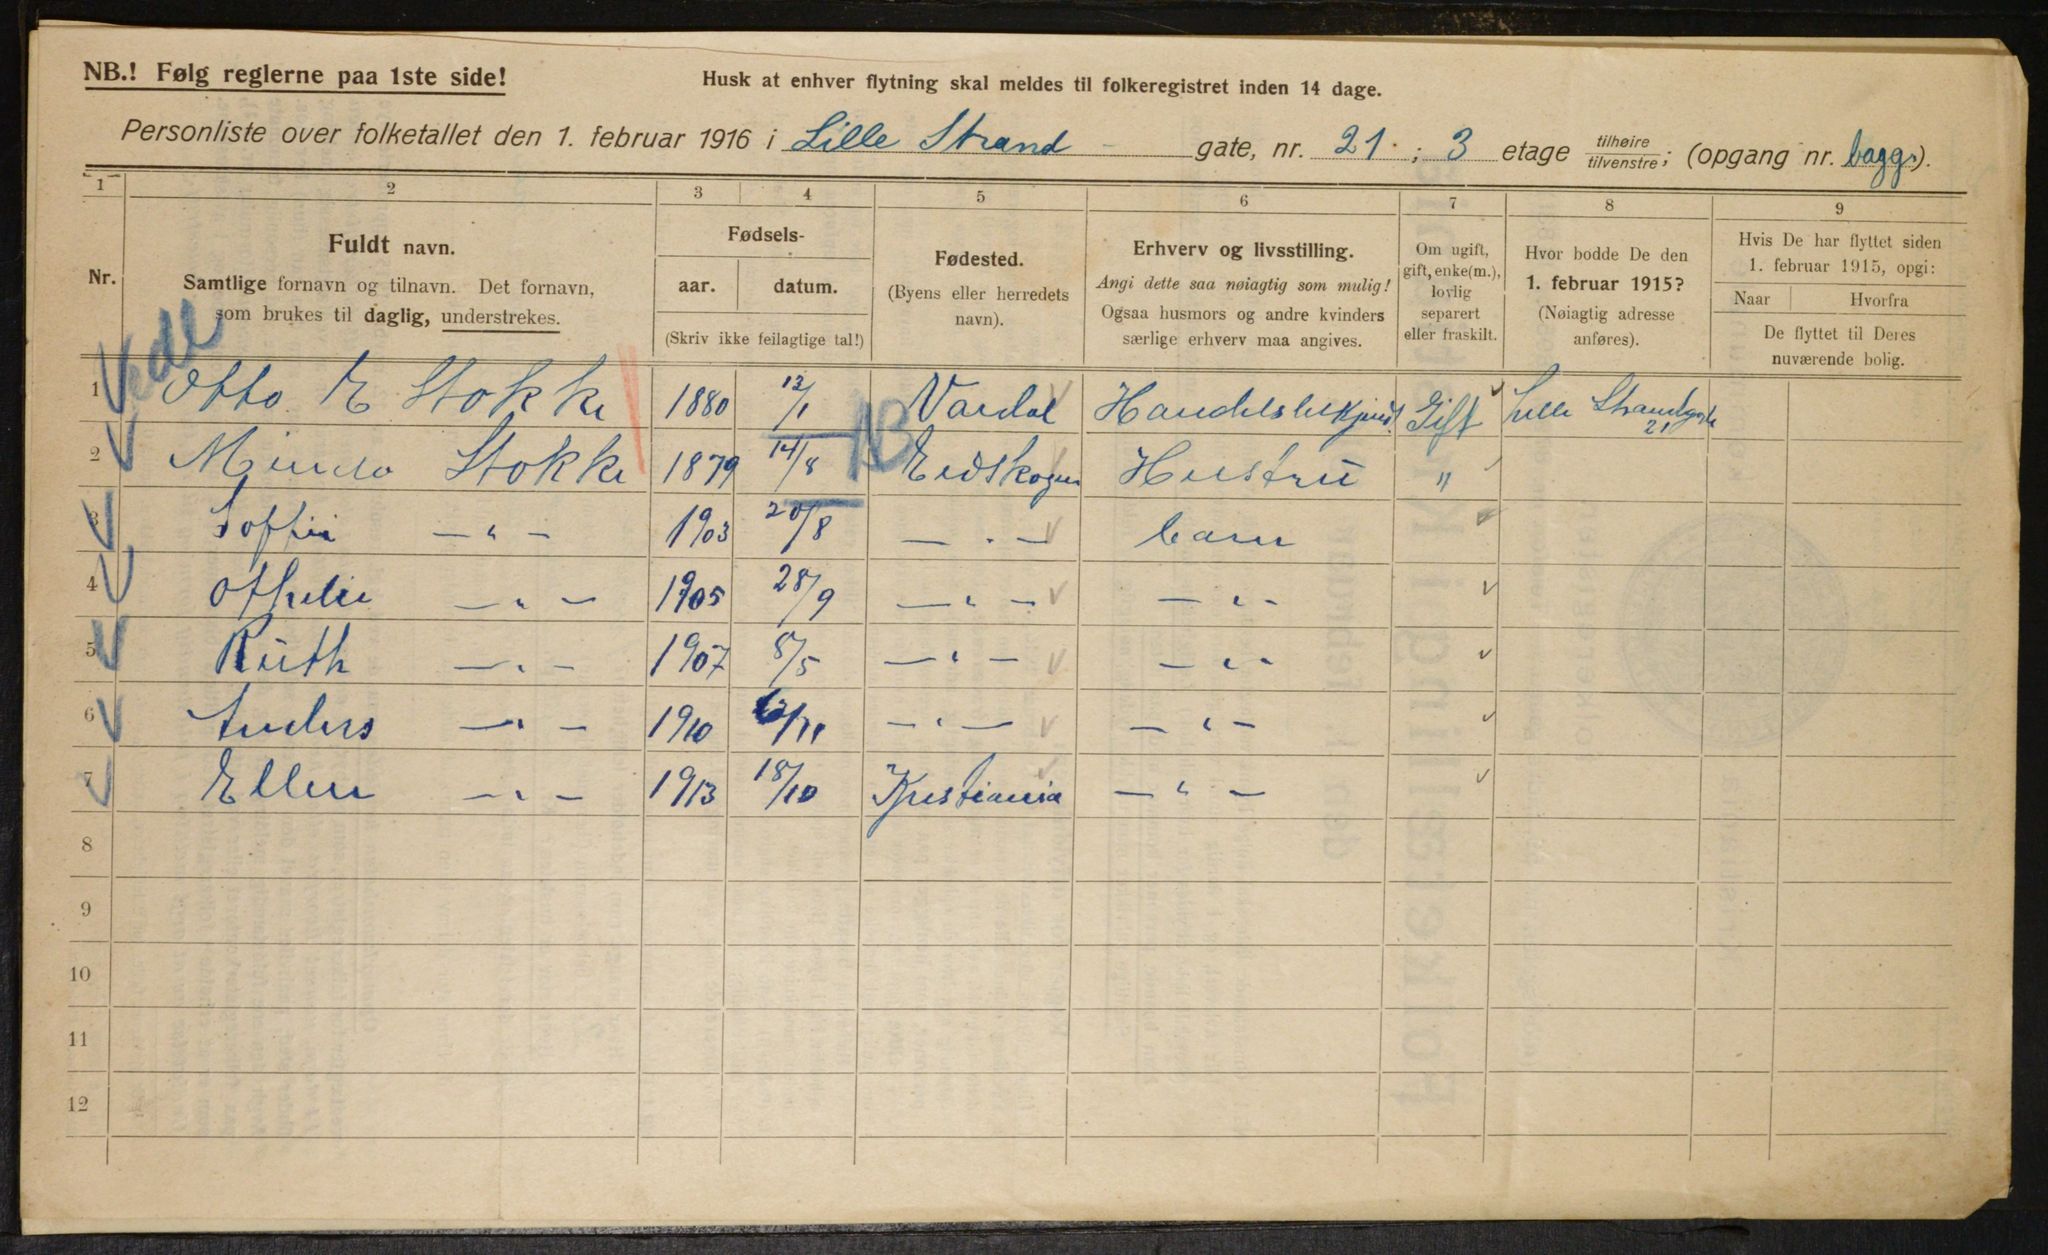 NB.! Følg reglerne paa 1ste side!
Husk at enhver flytning skal meldes til folkeregistret inden 14 dage.
Personliste over folketallet den 1. februar 1916 i Lille Strand - gate, nr. 21. ; 3 etage tilhøire/tilvenstre; (opgang nr. baggs).
1 2 3 4 5 6 7 8 9
Nr.
Fuldt navn.
Samtlige fornavn og tilnavn. Det fornavn,
som brukes til daglig, understrekes.
Fødsels-
aar. datum.
(Skriv ikke feilagtige tal!)
Fødested.
(Byens eller herredets
navn).
Erhverv og livsstilling.
Angi dette saa nøiagtig som mulig!
Ogsaa husmors og andre kvinders
særlige erhverv maa angives.
Om ugift,
gift, enke(m.),
lovlig
separert
eller fraskilt.
Hvor bodde De den
1. februar 1915?
(Nøiagtig adresse
anføres).
Hvis De har flyttet siden
1. februar 1915, opgi:
Naar Hvorfra
De flyttet til Deres
nuværende bolig.
1 Otto E Stokke 1880 12/1 Vardal Gift Lille Strandgade 21
NB
2 Stokke 1879 14/8 Eidskogen Hustru "
3 Soffie — " — 1903 20/8 — " — barn
4 — " — 1905 28/9 — " — — " —
5 Ruth — " — 1907 8/5 — " — — " —
6 Anders — " — 1910 — " — — " —
7 Ellen — " — 1913 18/10 Kristiania — " —
8
9
10
11
12